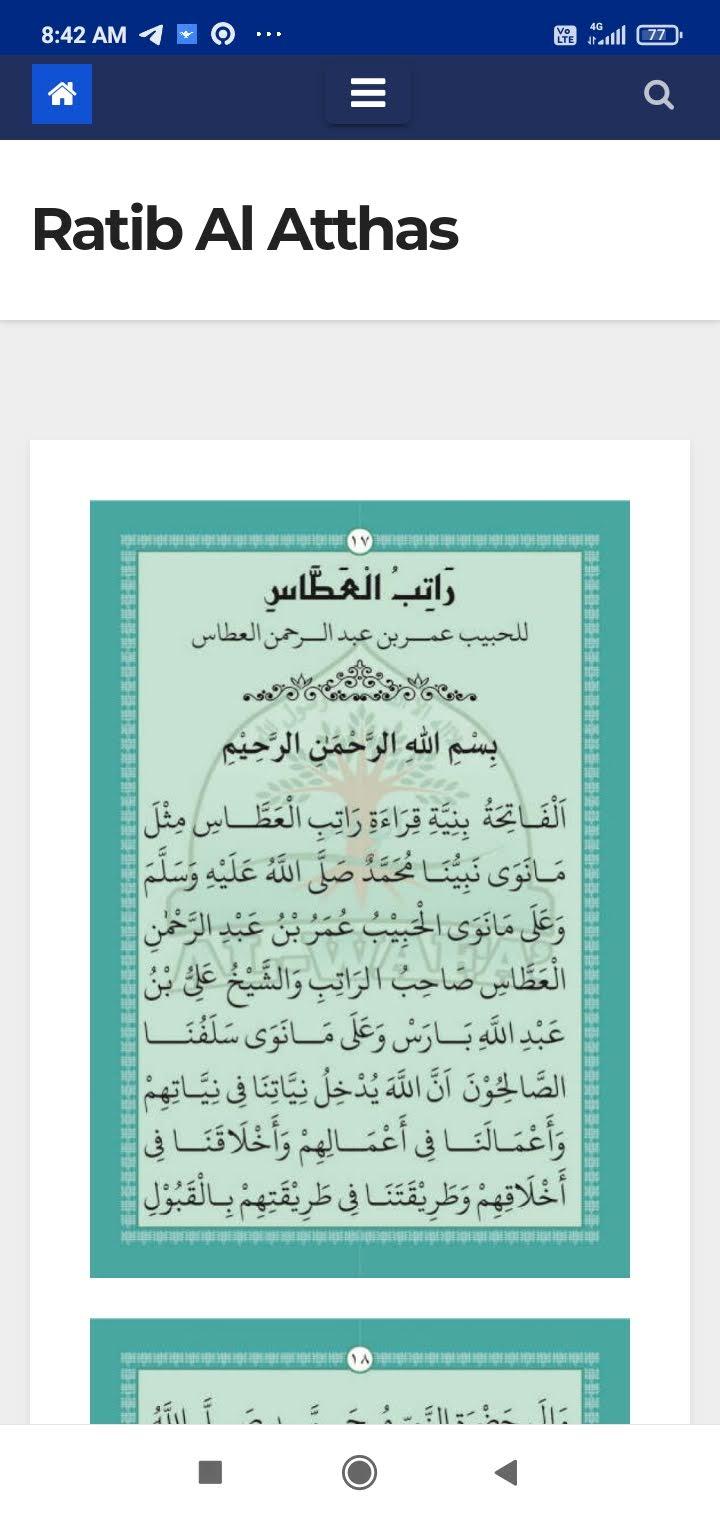 8:42 AM
4G
Vo LTE
77
Ratib Al Atthas
١٧
رَاتِبُ الْعَطَّاسِ
للحبيب عمر بن عبد الرحمن العطاس
بِسْمِ اللهِ الرَّحْمَنِ الرَّحِيْمِ
اَلْفَاتِحَةُ بِنِيَّةِ قِرَاءَةِ رَاتِبِ الْعَطَّاسِ مِثْلَ
مَانَوَى نَبِيُّنَا مُحَمَّدٌ صَلَّى اللَّهُ عَلَيْهِ وَسَلَّمَ
وَعَلَى مَانَوَى الْحَبِيْبُ عُمَرُ بْنُ عَبْدِ الرَّحْمٰنِ
الْعَطَّاسِ صَاحِبُ الرَاتِبِ وَالشَّيْخُ عَلِيُّ بْنُ
عَبْدِ اللَّهِ بَارَسْ وَعَلَى مَانَوَى سَلَفُنَا
الصَّالِحُوْنَ اَنَّ اللَّهَ يُدْخِلُ نِيَّاتِنَا فِى نِيَّاتِهِمْ
وَأَعْمَالَنَا فِى أَعْمَالِهِمْ وَأَخْلَاقَنَا فِى
أَخْلَاقِهِمْ وَطَرِيْقَتَنَا فِى طَرِيْقَتِهِمْ بِالْقَبُوْلِ
AL-WAFA
١٨